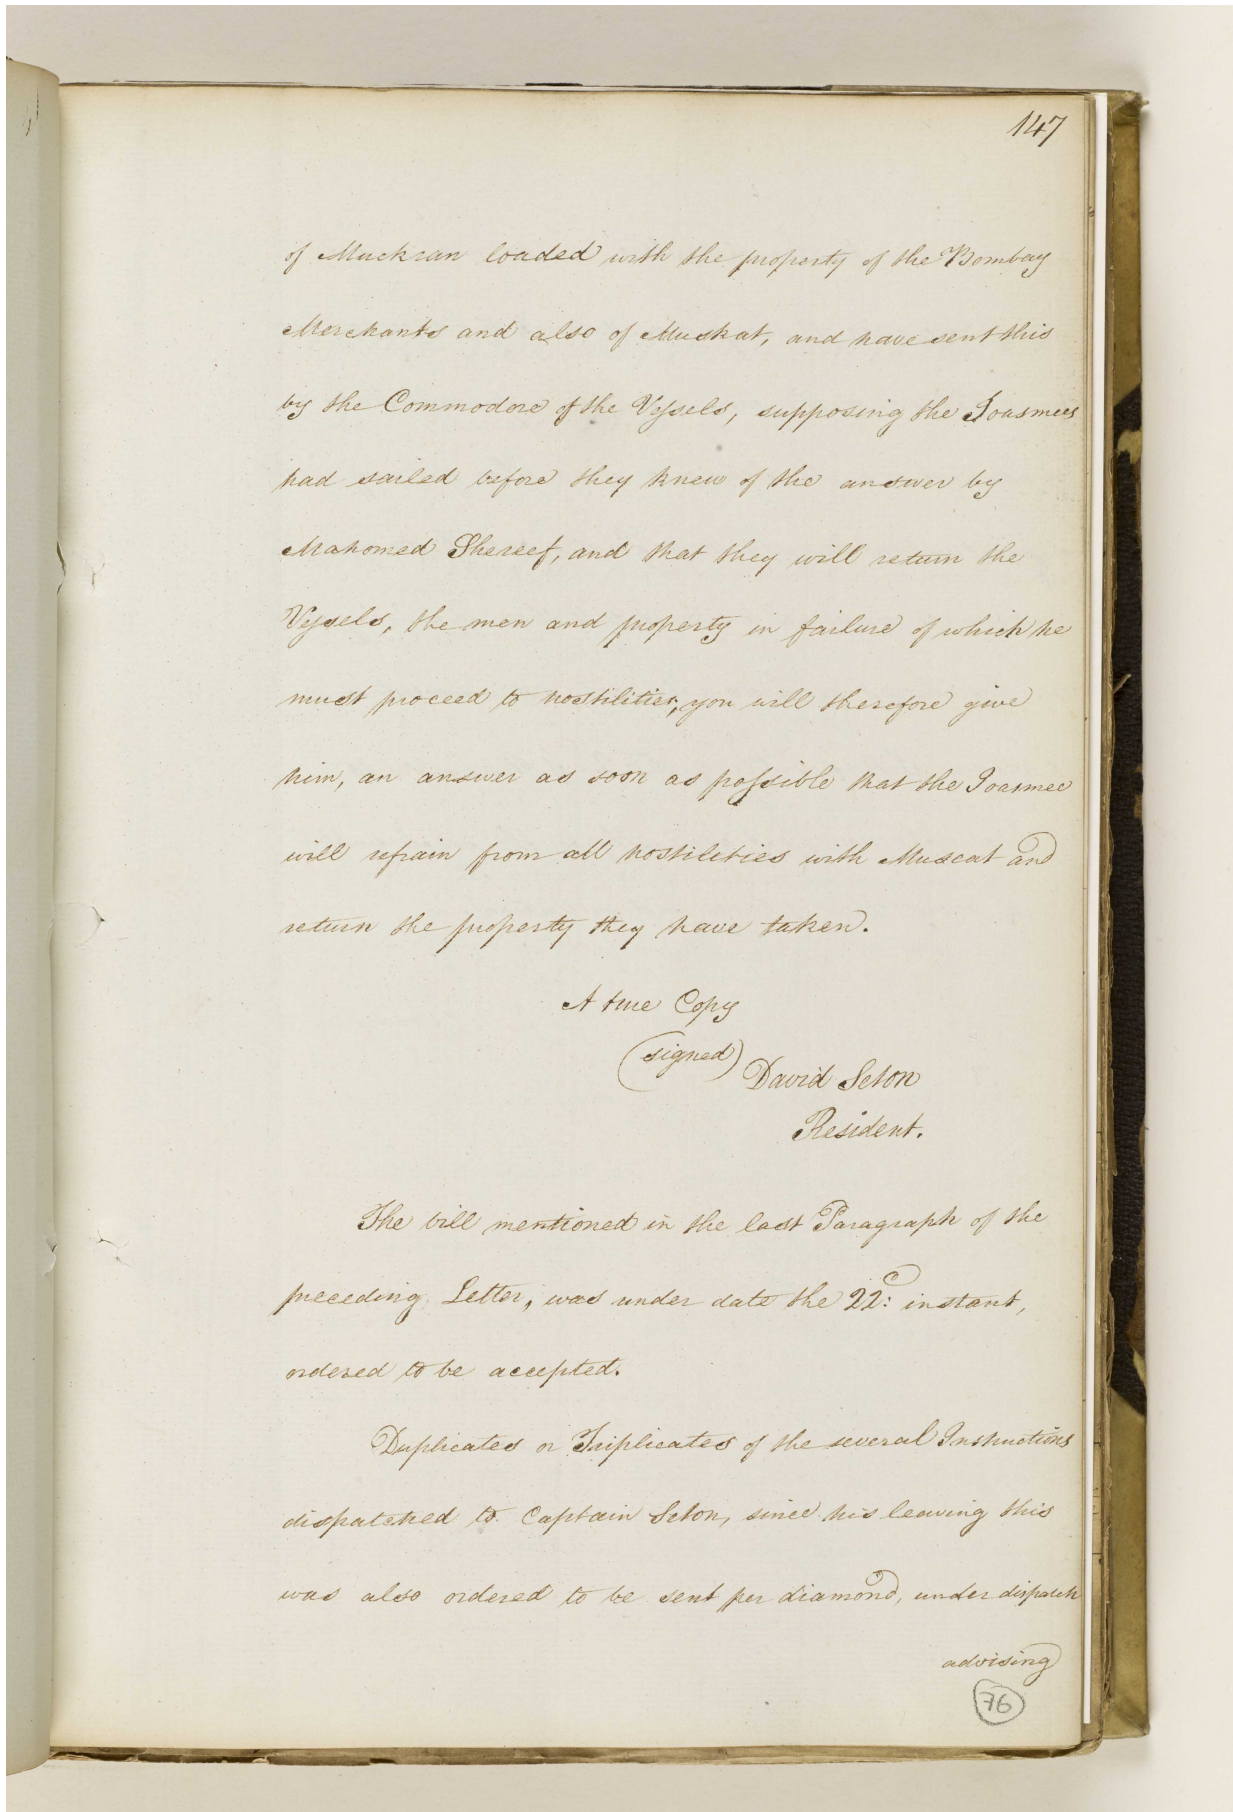 147
of Muckran loaded with the property of the Bombay
Merchants and also of Muskat, and have sent this
by the Commodore of the Vessels, supposing the Joasmees
had sailed before they knew of the answer by
Mahomed Shereef, and that they will return the
Vessels, the men and property in failure of which he
must proceed to hostilities, you will therefore give
him, an answer as soon as possible that the Joasmee
will refrain from all hostileties with Muscat and
return the property they have taken.
A true Copy
(signed)
David Seton
Resident.
The bill mentioned in the last Paragraph of the
preceding Letter, was under date the 22d: instant,
ordered to be accepted.
Duplicates or Triplicates of the several Instructions
dispatched to Captain Seton, since his leaving this
was also ordered to be sent per diamond, under dispatch
advising
76